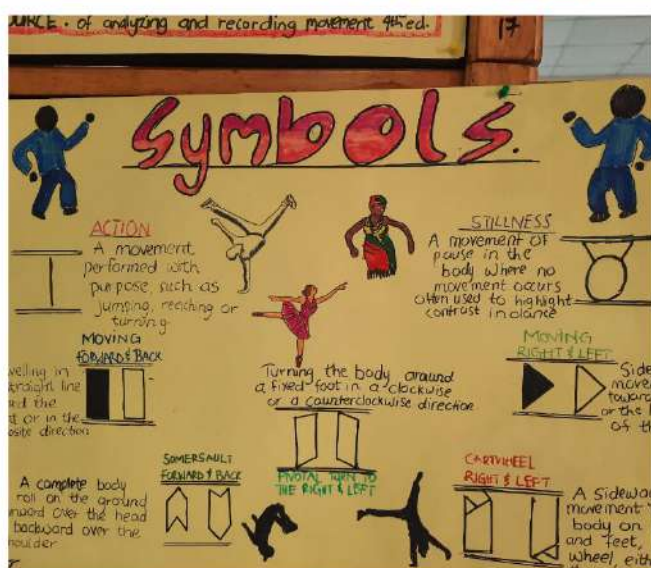 OURCE. of analyzing and recording movement 4th ed.
17
Symbols.
ACTION
A movement
performed with
purpose, such as
jumping, reaching or
turning.
STILLNESS
A movement of
pause in the
body where no
movement occurs
often used to highlight
contrast in dance
MOVING
FORWARD & BACK
velling in
straight line
or in the
osite direction
Turning the body around
a fixed foot in a clockwise
or a counterclockwise direction
MOVING
RIGHT & LEFT
Side
movem
toward
or the
of th
SOMERSAULT
FORWARD & BACK
A complete body
roll on the ground
over the head
backward over the
houlder
PIVOTAL TURN TO
THE RIGHT & LEFT
CARTWHEEL
RIGHT & LEFT
A Sidewa
movement
body on
and feet,
wheel, eith